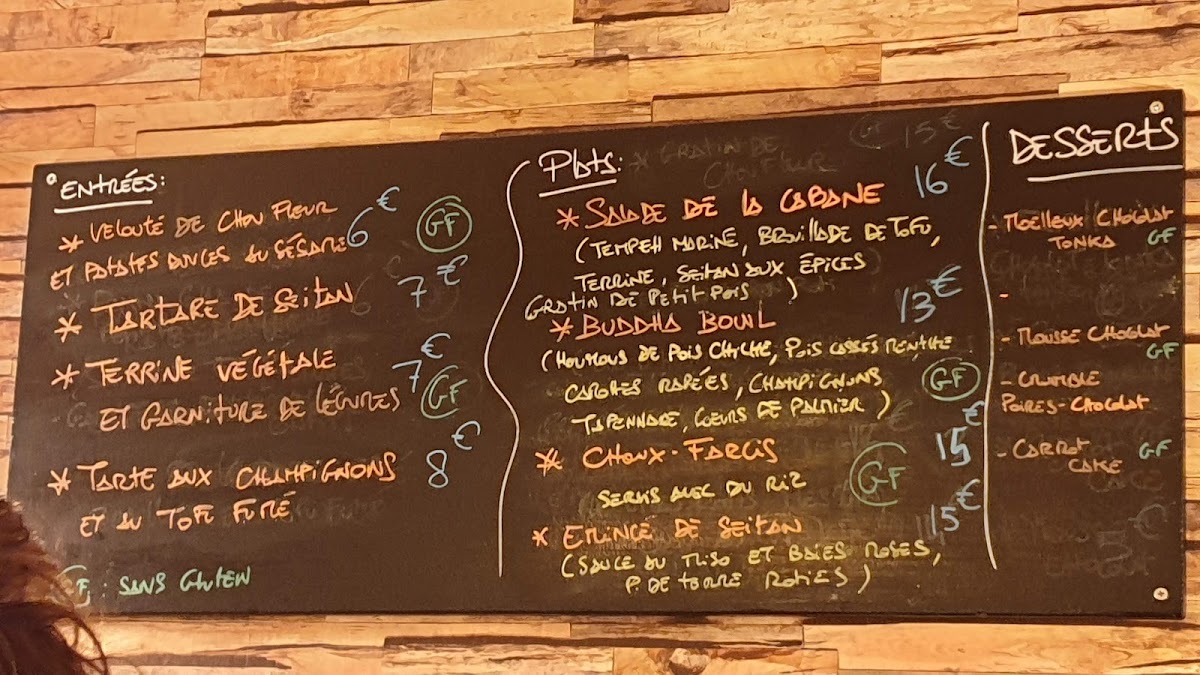 ENTRÉES:
* VELOUTÉ DE CHOU FLEUR
ET PATATES DOUCES AU SÉSAME 6€ GF
* TARTARE DE SEITAN 7€
* TERRINE VÉGÉTALE 7€
ET GARNITURE DE LÉGUMES GF
* TARTE AUX CHAMPIGNONS 8€
ET AU TOFU FUMÉ
GF : SANS GLUTEN
Plats:
* GRATIN DE
CHOU FLEUR GF 15€
* SALADE DE LA CABANE 16€
(TEMPEH MARINÉ, BROUILLADE DE TOFU,
TERRINE, SEITAN AUX ÉPICES
GRATIN DE PETIT POIS )
* BUDDHA BOWL 13€
(HOUMOUS DE POIS CHICHE, POIS CASSÉS MENTHE
CAROTTES RAPÉES, CHAMPIGNONS GF
TAPENNADE, COEURS DE PALMIER )
* CHOUX-FARCIS 15€
SERVIS AVEC DU RIZ GF
* EMINCÉ DE SEITAN 15€
(SAUCE AU MISO ET BAIES ROSES,
P. DE TERRE ROTIES )
DESSERTS
- MOELLEUX CHOCOLAT
TONKA GF
-
- MOUSSE CHOCOLAT
GF
- CRUMBLE
POIRES-CHOCOLAT
- CARROT GF
CAKE